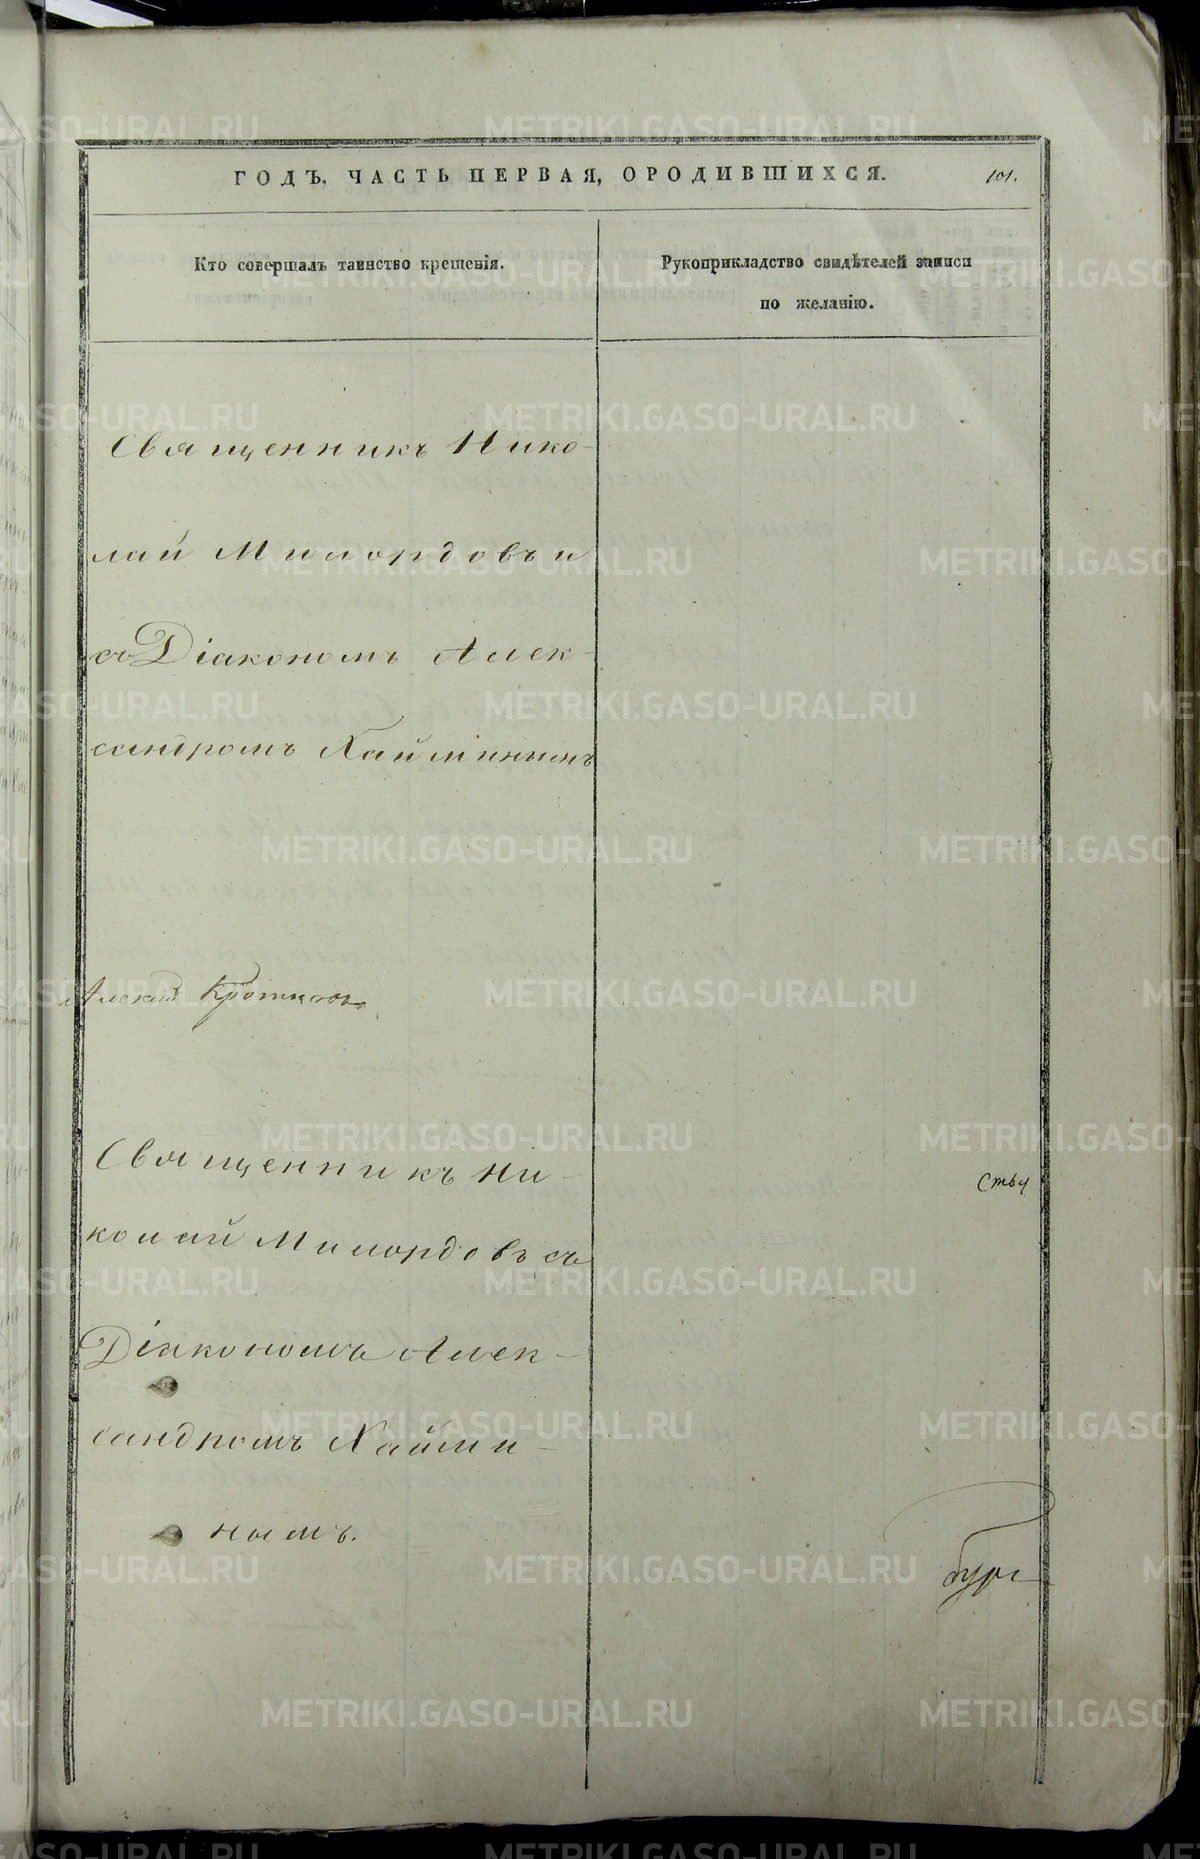 ГОДЪ. ЧАСТЬ ПЕРВАЯ, ОРОДИВШИХСЯ.
101.
Кто совершалъ таинство крещенія.
Рукоприкладство свидѣтелей записи
по желанію.
Священникъ Нико-
лай Милордовъ и
съ Діакономъ Алек-
сандромъ Хайминымъ
Алексій Кротковъ
Священникъ Ни-
колай Милордовъ съ
Діакономъ Алек-
сандромъ Хайми-
нымъ.
бург
METRIKI.GASO-URAL.RU